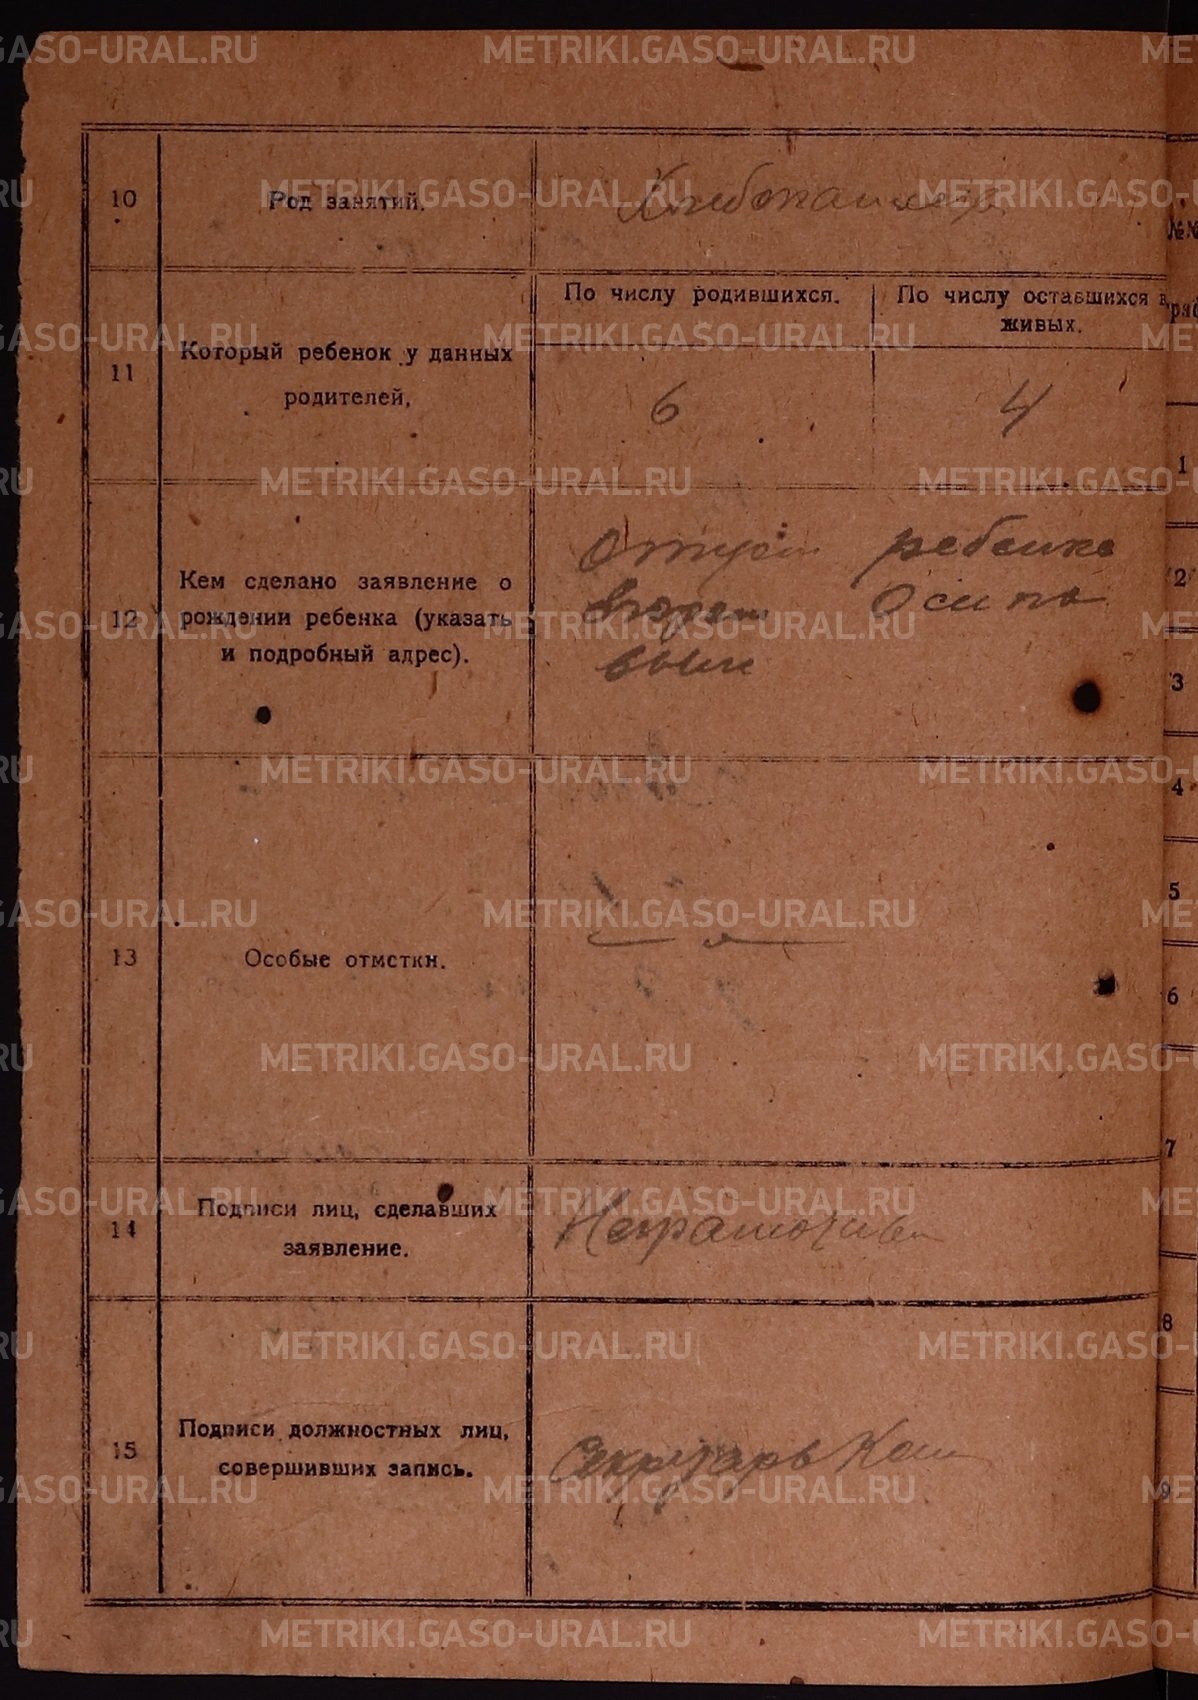 10
Род занятий.
Хлебопашец
11
Который ребенок у данных
родителей.
По числу родившихся.
По числу оставшихся в
живых.
6
4
12
Кем сделано заявление о
рождении ребенка (указать
и подробный адрес).
Отцом ребенка
Осипо
вым
13
Особые отметки.
14
Подписи лиц, сделавших
заявление.
Неграмотн
15
Подписи должностных лиц,
совершивших запись.
Секретарь
№№
1
2
3
4
5
6
7
8
9
METRIKI.GASO-URAL.RU